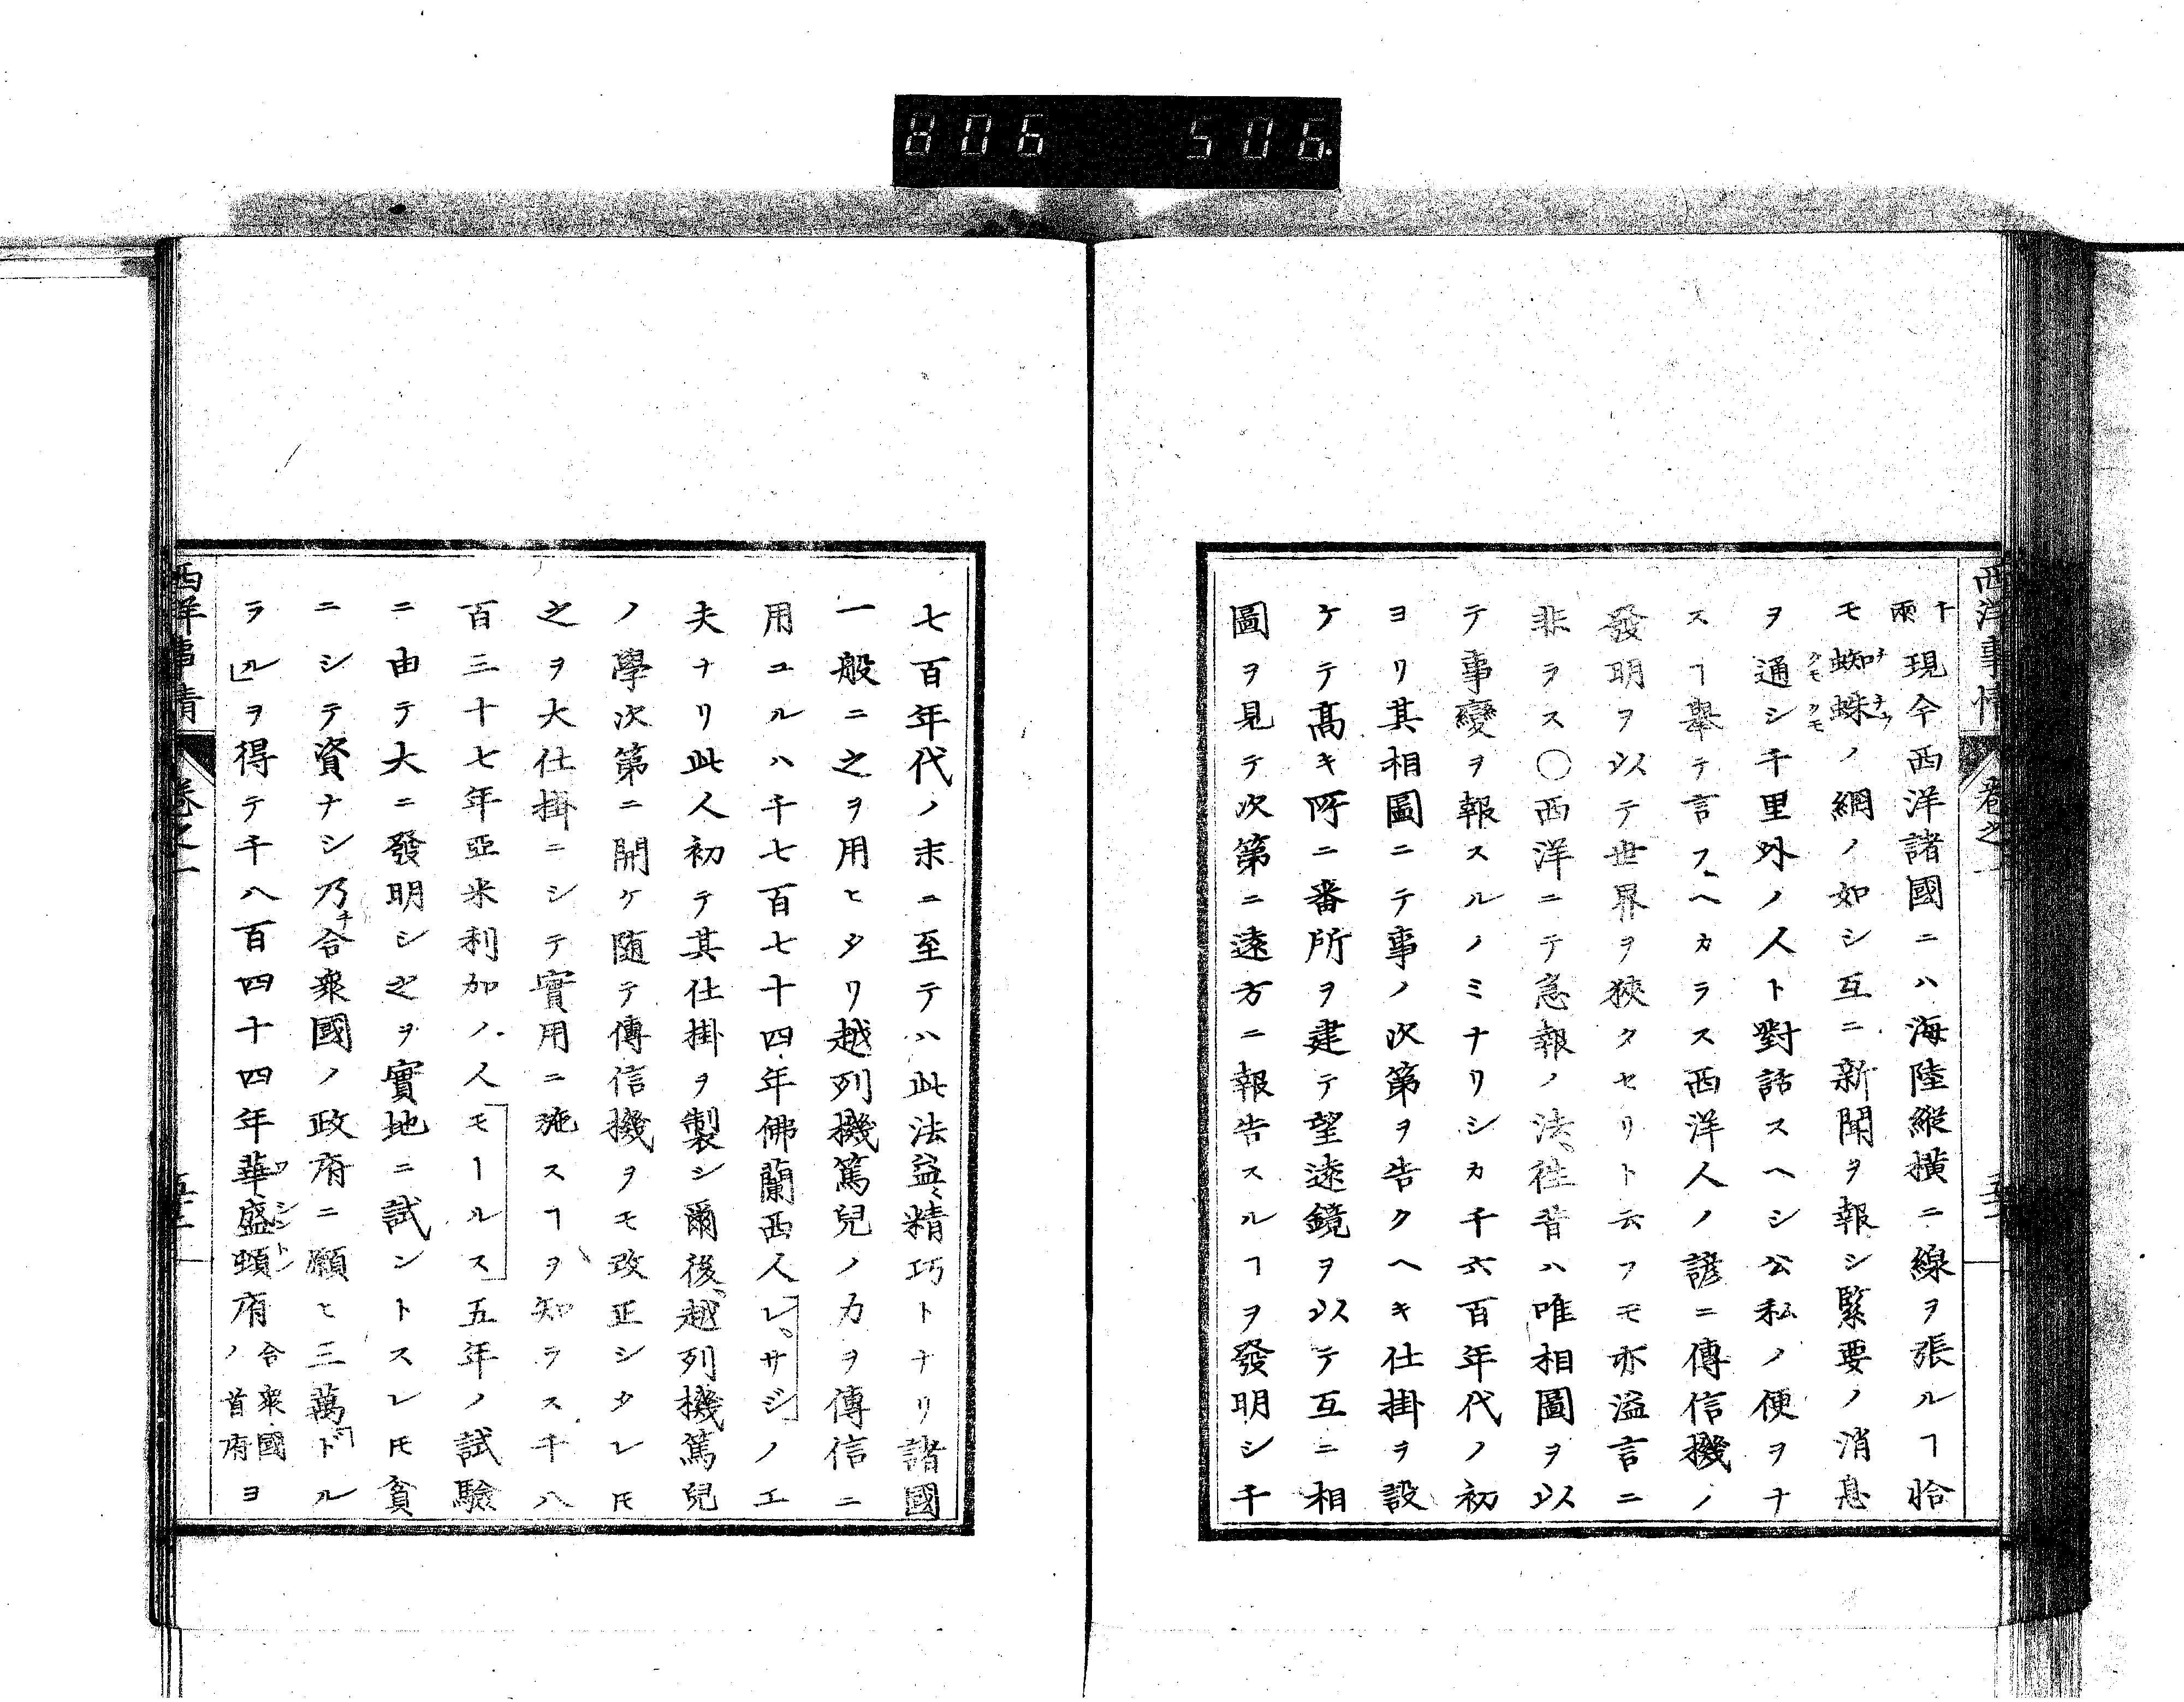 806 506.
西洋事情 卷之一
千
兩 現今西洋諸國ニハ海陸縱橫ニ線ヲ張ルヿ恰
モ蜘蛛ノ網ノ如シ互ニ新聞ヲ報シ緊要ノ消息
ヲ通シ千里外ノ人ト對話スヘシ公私ノ便ヲナ
スヿ擧テ言フヘカラス西洋人ノ諺ニ傳信機ノ
發明ヲ以テ世界ヲ狹クセリト云フモ亦溢言ニ
非ラス〇西洋ニテ急報ノ法、徃昔ハ唯相圖ヲ以
テ事變ヲ報スルノミナリシカ千六百年代ノ初
ヨリ其相圖ニテ事ノ次第ヲ告クヘキ仕掛ヲ設
ケテ髙キ所ニ番所ヲ建テ望遠鏡ヲ以テ互ニ相
圖ヲ見テ次第ニ遠方ニ報告スルヿヲ發明シ千
七百年代ノ末ニ至テハ此法益〻精巧トナリ諸國
一般ニ之ヲ用ヒタリ越列機篤兒ノ力ヲ傳信ニ
用ユルハ千七百七十四年佛蘭西人レ、サジノ工
夫ナリ此人初テ其仕掛ヲ製シ爾後、越列機篤兒
ノ學次第ニ開ケ隨テ傳信機ヲモ改正シタレ𪜈
之ヲ大仕掛ニシテ實用ニ施スヿヲ知ラス千八
百三十七年亞米利加ノ人モールス五年ノ試驗
ニ由テ大ニ發明シ之ヲ實地ニ試ントスレ𪜈貧
ニシテ資ナシ乃チ合衆國ノ政府ニ願ヒ三萬ドル
ラルヲ得テ千八百四十四年華盛頓府合衆國ノ首府ヨ
西洋事情 卷之一